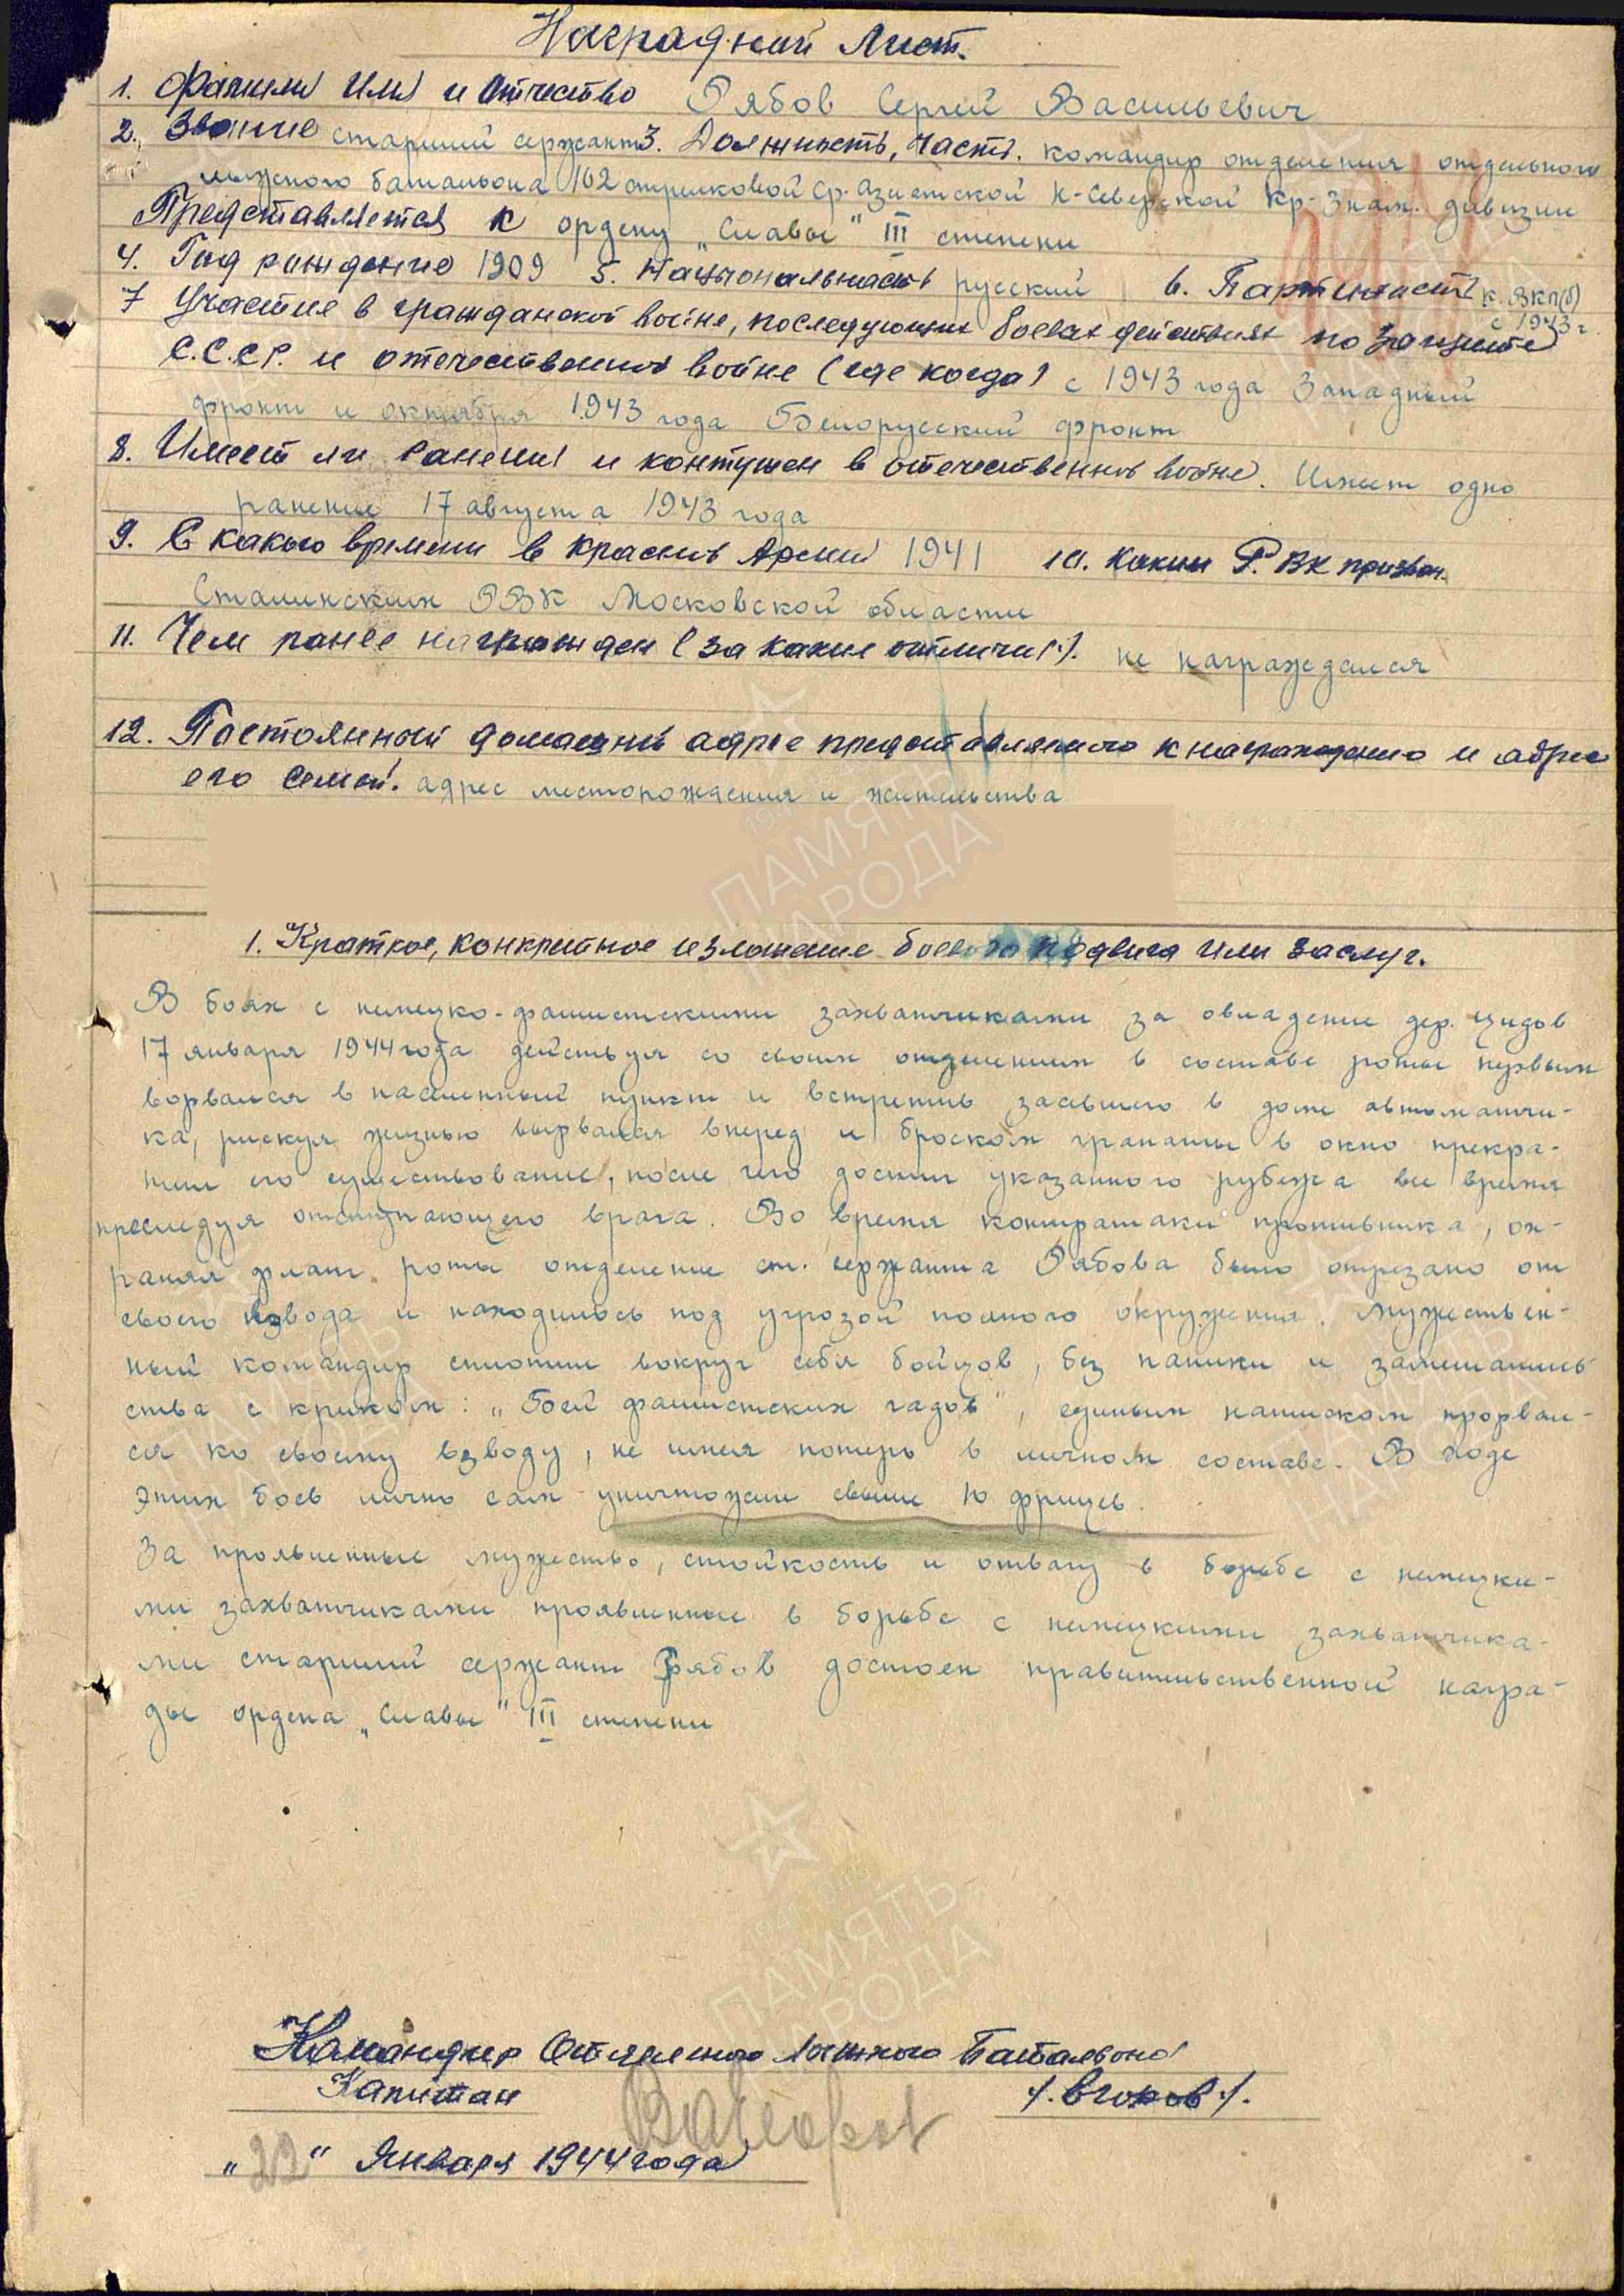 Наградной Лист.
1. Фамилия Имя и Отчество Рябов Сергей Васильевич
2. Звание старший сержант 3. Должность, часть. командир отделения отдельного
лыжного батальона 102 стрелковой Ср. Азиатской Н-Северской Кр-Знам. дивизии
Представляется к ордену „Славы" III степени
4. Год рождение 1909 5. Национальность русский 6. Партийность к. ВКП(б)
с 1943 г.
7 Участие в гражданской войне, последующих боевых действиях по защите
С.С.С.Р. и отечественной войне (где когда) с 1943 года Западный
фронт и октября 1943 года Белорусский фронт
8. Имеет ли ранения и контузен в отечественной войне. Имеет одно
ранение 17 августа 1943 года
9. С какого времени в красной Армии 1941 10. Каким Р.ВК призван.
Сталинским РВК Московской области
11. Чем ранее награжден (за какие отличия). не награждался
12. Постоянный домашний адрес представляемого к награждению и адрес
его семьи. адрес месторождения и жительства
1. Краткое, конкретное изложение боевого подвига или заслуг.
В боях с немецко-фашистскими захватчиками за овладение дер.
17 января 1944 года действуя со своим отделением в составе роты первым
ворвался в населенный пункт и встретив засевшего в доме автоматчи-
ка, рискуя жизнью вырвался вперед и броском гранаты в окно прекра-
тил его существование, после чего достиг указанного рубежа все время
преследуя отступающего врага. Во время контратаки противника, ох-
раняя фланг роты отделение ст. сержанта Рябова было отрезано от
своего взвода и находилось под угрозой полного окружения. Мужествен-
ный командир сплотил вокруг себя бойцов, без паники и замешатель
ства с криком: „Бей фашистских гадов", единым натиском прорвал-
ся ко своему взводу, не имея потерь в личном составе. В ходе
этих боев лично сам уничтожил свыше 10 фрицев.
За проявленные мужество, стойкость и отвагу в борьбе с немецки-
ми захватчиками проявленные в борьбе с немецкими захватчика-
ми старший сержант Рябов достоен правительственной награ-
ды ордена „Славы" III степени
Командир Отдельного Лыжного Батальона
Капитан /. Егоров /.
„22" Января 1944 года
ПАМЯТЬ
НАРОДА